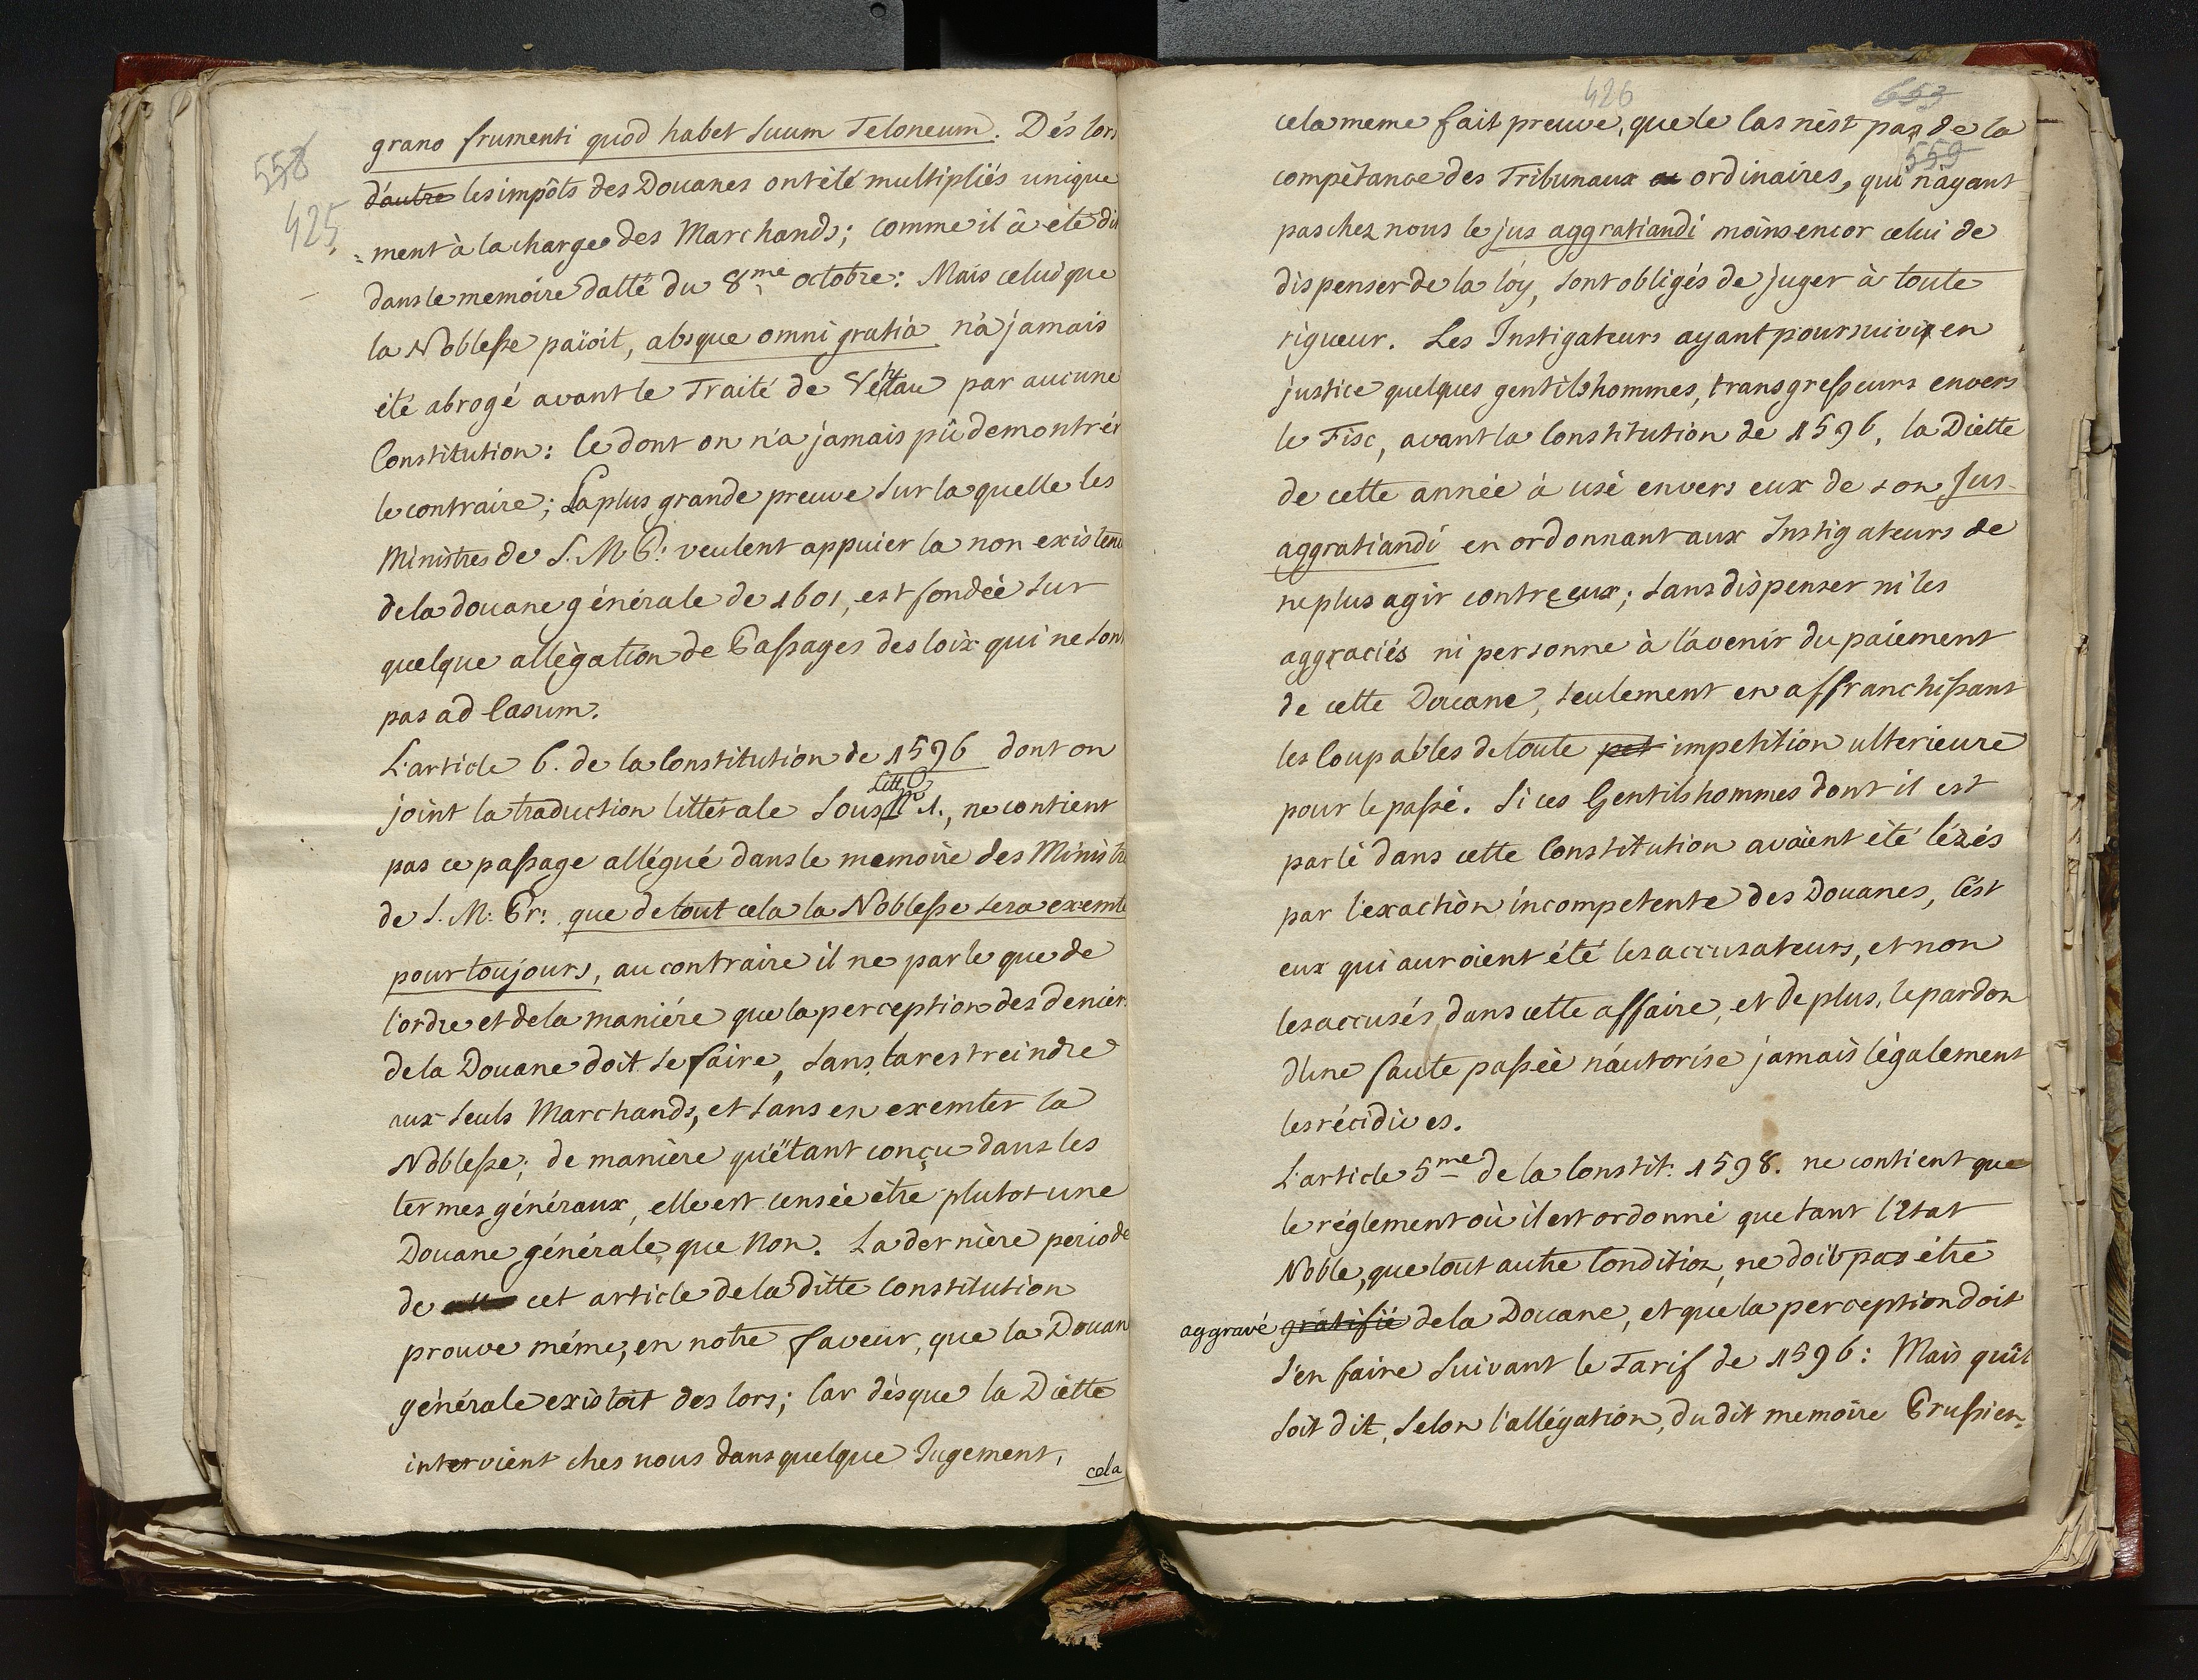 558
425
grano frumenti quod habet suum Teloneum. Dés lors
d'autre les impôts des Douanes ont été multipliés unique
=ment à la charge des Marchands; comme il à été dit
dans le memoire datté du 8me octobre: Mais celui que
la Noblesse païoit, absque omni gratiâ n'a jamais
été abrogé avant le Traité de Vehlau par aucune
Constitution: Ce dont on n'a jamais pû demontrér
le contraire; La plus grande preuve sur la quelle les
Ministres de S. M. P: veulent appuier la non existence
de la douane générale de 1601, est fondée sur
quelque allégation de Passages des loix qui ne sont
pas ad Casum.
L'article 6. de la Constitution de 1596 dont on
Litt. C
joint la traduction littérale sous N° 1., ne contient
pas ce passage allégué dans le memoire des Ministres
de S. M: Pr: que de tout cela la Noblesse sera exemte
pour toujours, au contraire il ne parle que de
l'ordre et de la maniére que la perception des deniers
de la Douane doit se faire, sans la restreindre
aux seuls Marchands, et sans en exemter la
Noblesse; de manière qu'ëtant conçu dans les
termes généraux, elle est censée être plutot une
Douane générale, que non. La dernière periode
de cet article de la ditte Constitution
prouve même, en notre faveur, que la Douane
générale existoit des lors; Car dèsque la Diette
intervient ches nous dans quelque Jugement,
cela
426
653
559
cela meme fait preuve, que le Cas n'est pas de la
compétance des Tribunaux ou ordinaires, qui n'ayant
pas chez nous le jus aggratiandi moins encor celui de
dispenser de la loy, sont obligés de juger à toute
rigueur. Les Instigateurs ayant poursuivis en
justice quelques gentilshommes, transgresseurs envers
le Fisc, avant la Constitution de 1596, la Diette
de cette année à usé envers eux de son Jus
aggratiandi en ordonnant aux Instigateurs de
ne plus agir contre eux; sans dispenser ni les
aggraciés ni personne à l'avenir du paiement
de cette Douane, seulement en affranchissant
les Coupables de toute pet impetition ulterieure
pour le passé. Si ces Gentilshommes dont il est
parlé dans cette Constitution avaient été lézés
par l'exaction incompetente des Douanes, c'ést
eux qui auroient été les accusateurs, et non
les accusés dans cette affaire, et de plus, le pardon
d'une faute passée n'autorise jamais légalement
les récidives.
L'article 5me de la Constit: 1598. ne contient que
le réglement où il est ordonné que tant l'Etat
Noble, que tout autre Condition, ne doit pas être
aggravé gratifié de la Douane, et que la perception doit
s'en faire suivant le Tarif de 1596: Mais qu'il
soit dit, selon l'allégation, du dit memoire Prussien,